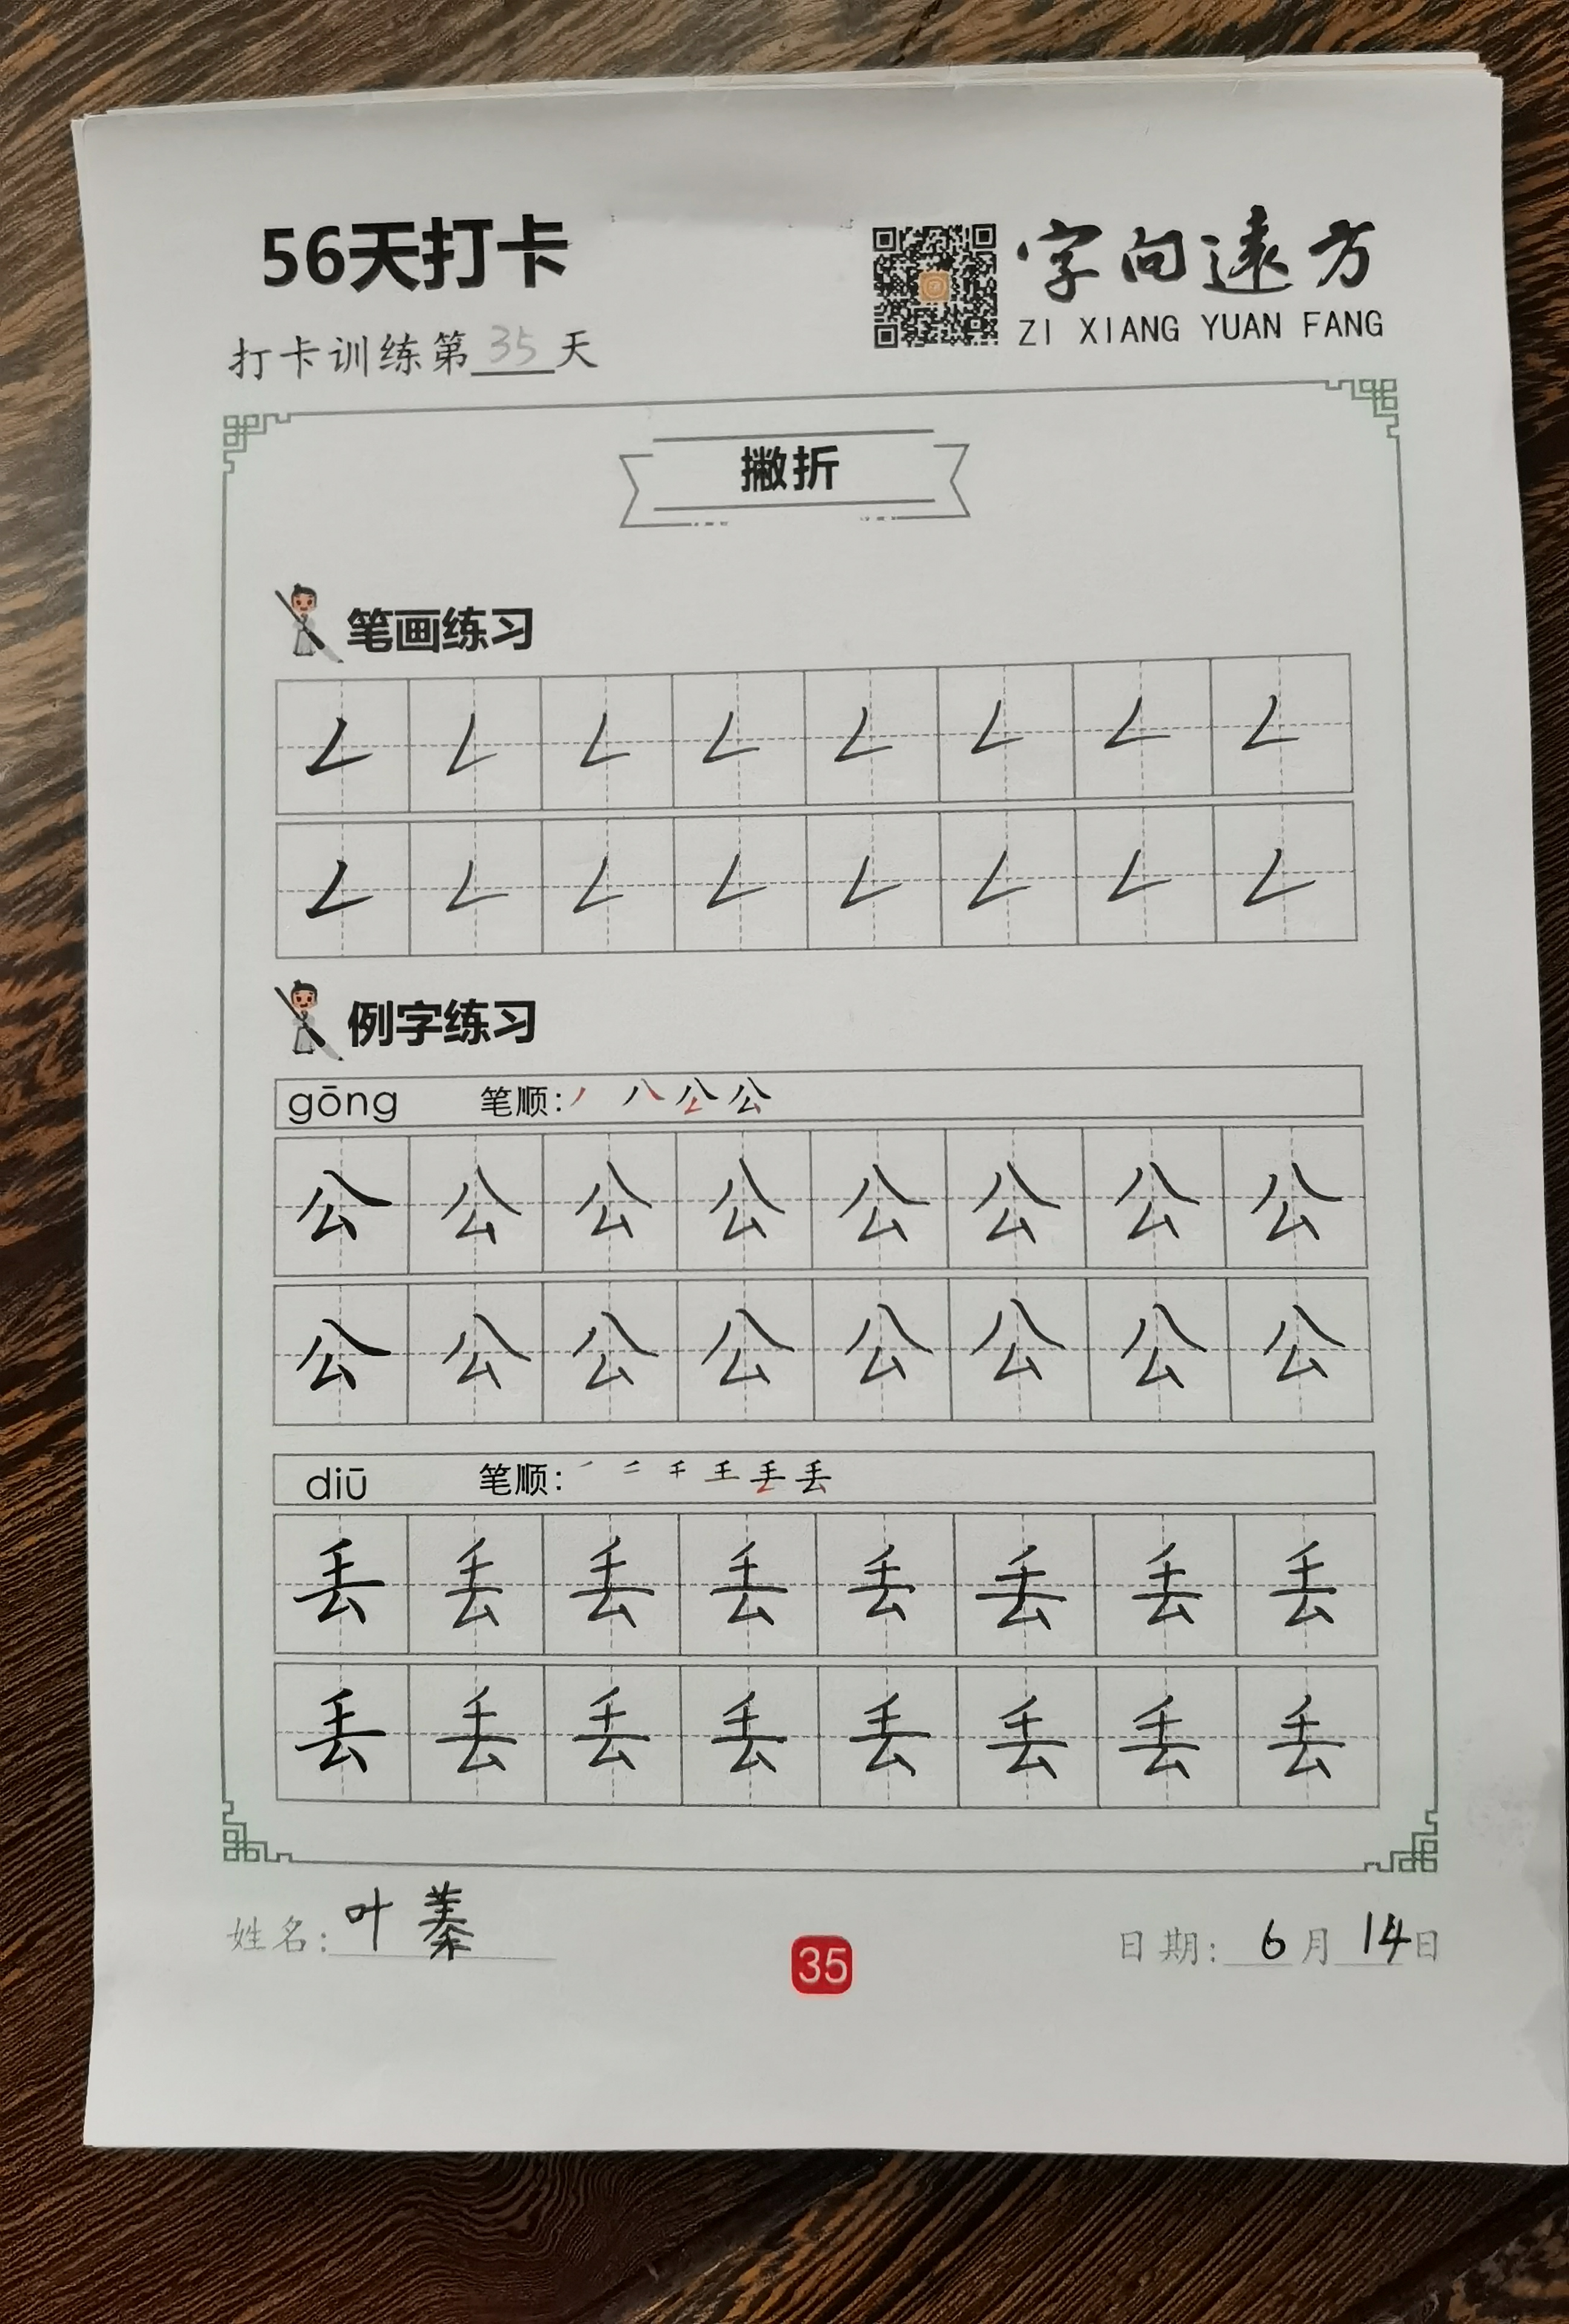 56天打卡
字向遠方
ZI XIANG YUAN FANG
打卡训练第35天
撇折
笔画练习
𠃋 𠃋 𠃋 𠃋 𠃋 𠃋 𠃋 𠃋
𠃋 𠃋 𠃋 𠃋 𠃋 𠃋 𠃋 𠃋
例字练习
gōng 笔顺: 丿 八 公 公
公 公 公 公 公 公 公 公
公 公 公 公 公 公 公 公
diū 笔顺: 丿 二 千 王 丢 丢
丢 丢 丢 丢 丢 丢 丢 丢
丢 丢 丢 丢 丢 丢 丢 丢
姓名: 叶蓁
35
日期: 6月14日